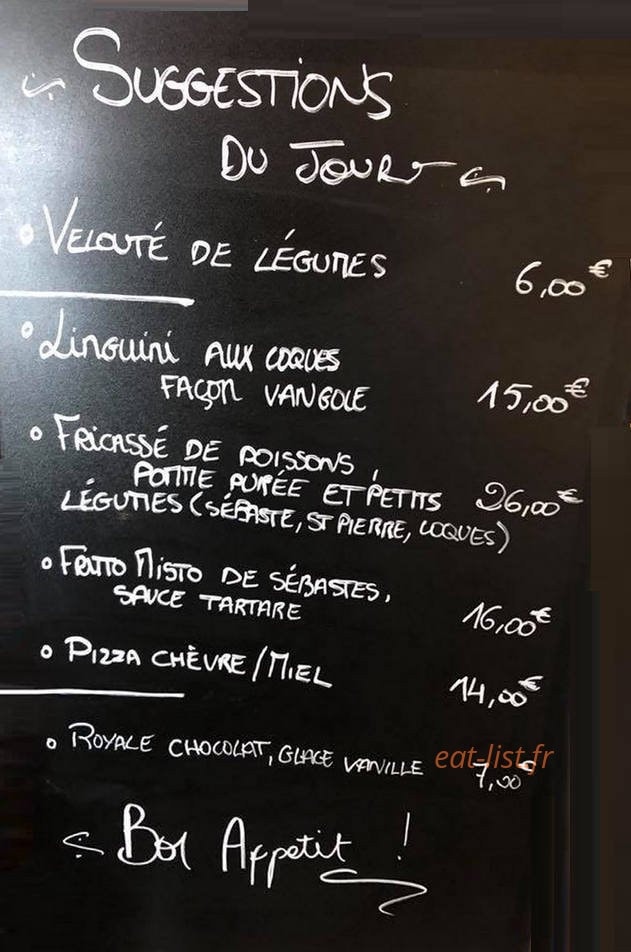 SUGGESTIONS
DU JOUR
VELOUTÉ DE LÉGUMES 6,00€
LINGUINI AUX COQUES
FAÇON VANGOLE 15,00€
FRICASSÉ DE POISSONS,
POMME PURÉE ET PETITS 26,00€
LÉGUMES (SÉBASTE, ST PIERRE, COQUES)
FRITTO MISTO DE SÉBASTES,
SAUCE TARTARE 16,00€
PIZZA CHÈVRE/MIEL 14,00€
ROYALE CHOCOLAT, GLACE VANILLE 7,00€
eat-list.fr
Bon Appetit !